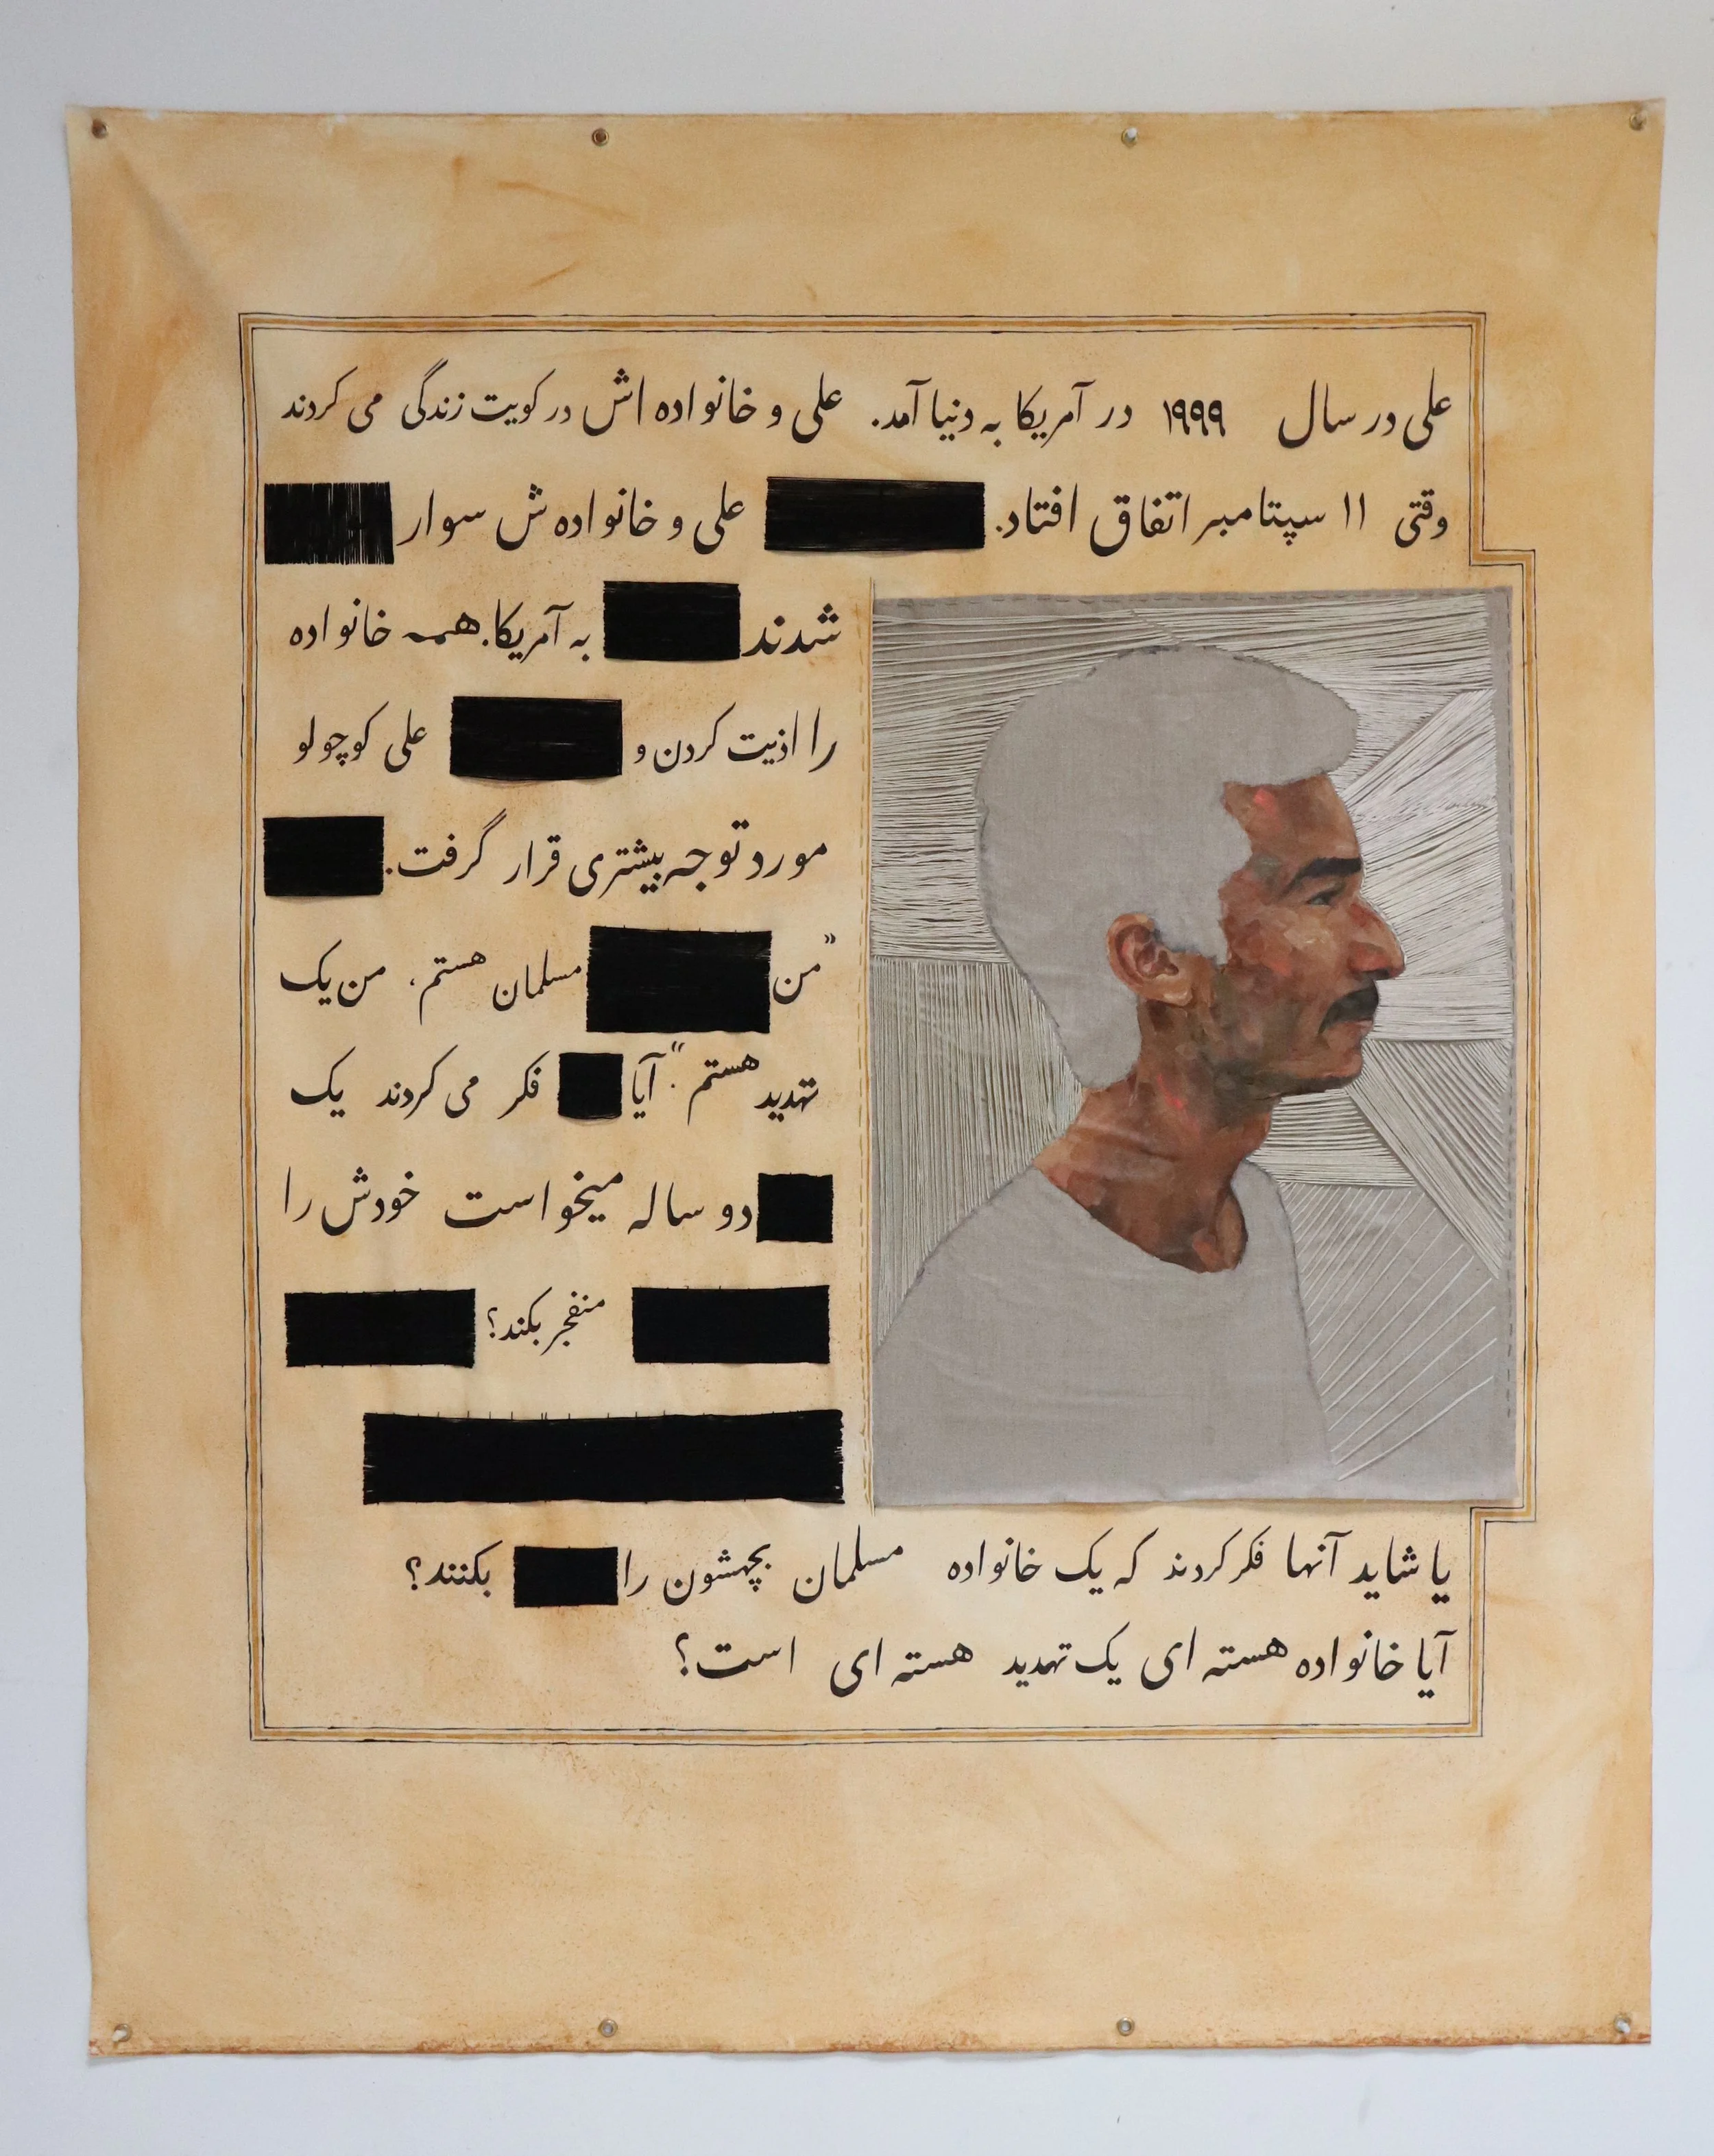 علی در سال ۱۹۹۹ در آمریکا به دنیا آمد. علی و خانواده اش در کویت زندگی می کردند
وقتی ۱۱ سپتامبر اتفاق افتاد. علی و خانواده ش سوار
شدند به آمریکا. همه خانواده
را اذیت کردن و علی کوچولو
مورد توجه بیشتری قرار گرفت.
"من مسلمان هستم. من یک
تهدید هستم." آیا فکر می کردند یک
دو ساله میخواست خودش را
منفجر بکند؟
یا شاید آنها فکر کردند که یک خانواده مسلمان بچهشون را بکنند؟
آیا خانواده هسته ای یک تهدید هسته ای است؟